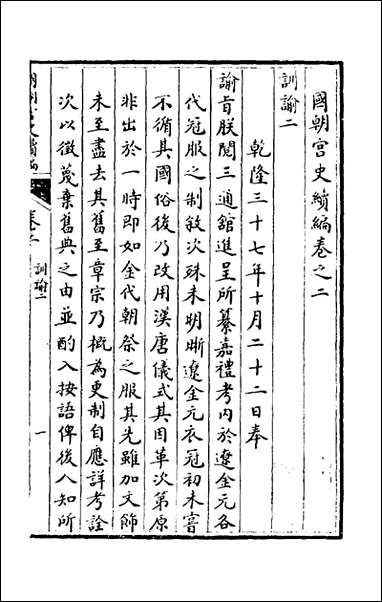 國朝宮史續編卷之二
訓諭二
乾隆三十七年十月二十二日奉
諭旨朕閱三通館進呈所纂嘉禮考內於遼金元各
代冠服之制敘次殊未明晰遼金元衣冠初未嘗
不循其國俗後乃改用漢唐儀式其因革次第原
非出於一時即如金代朝祭之服其先雖加文飾
未至盡去其舊至章宗乃概為更制自應詳考詮
次以徵蔑棄舊典之由並酌入按語俾後人知所
卷二
訓諭二
一